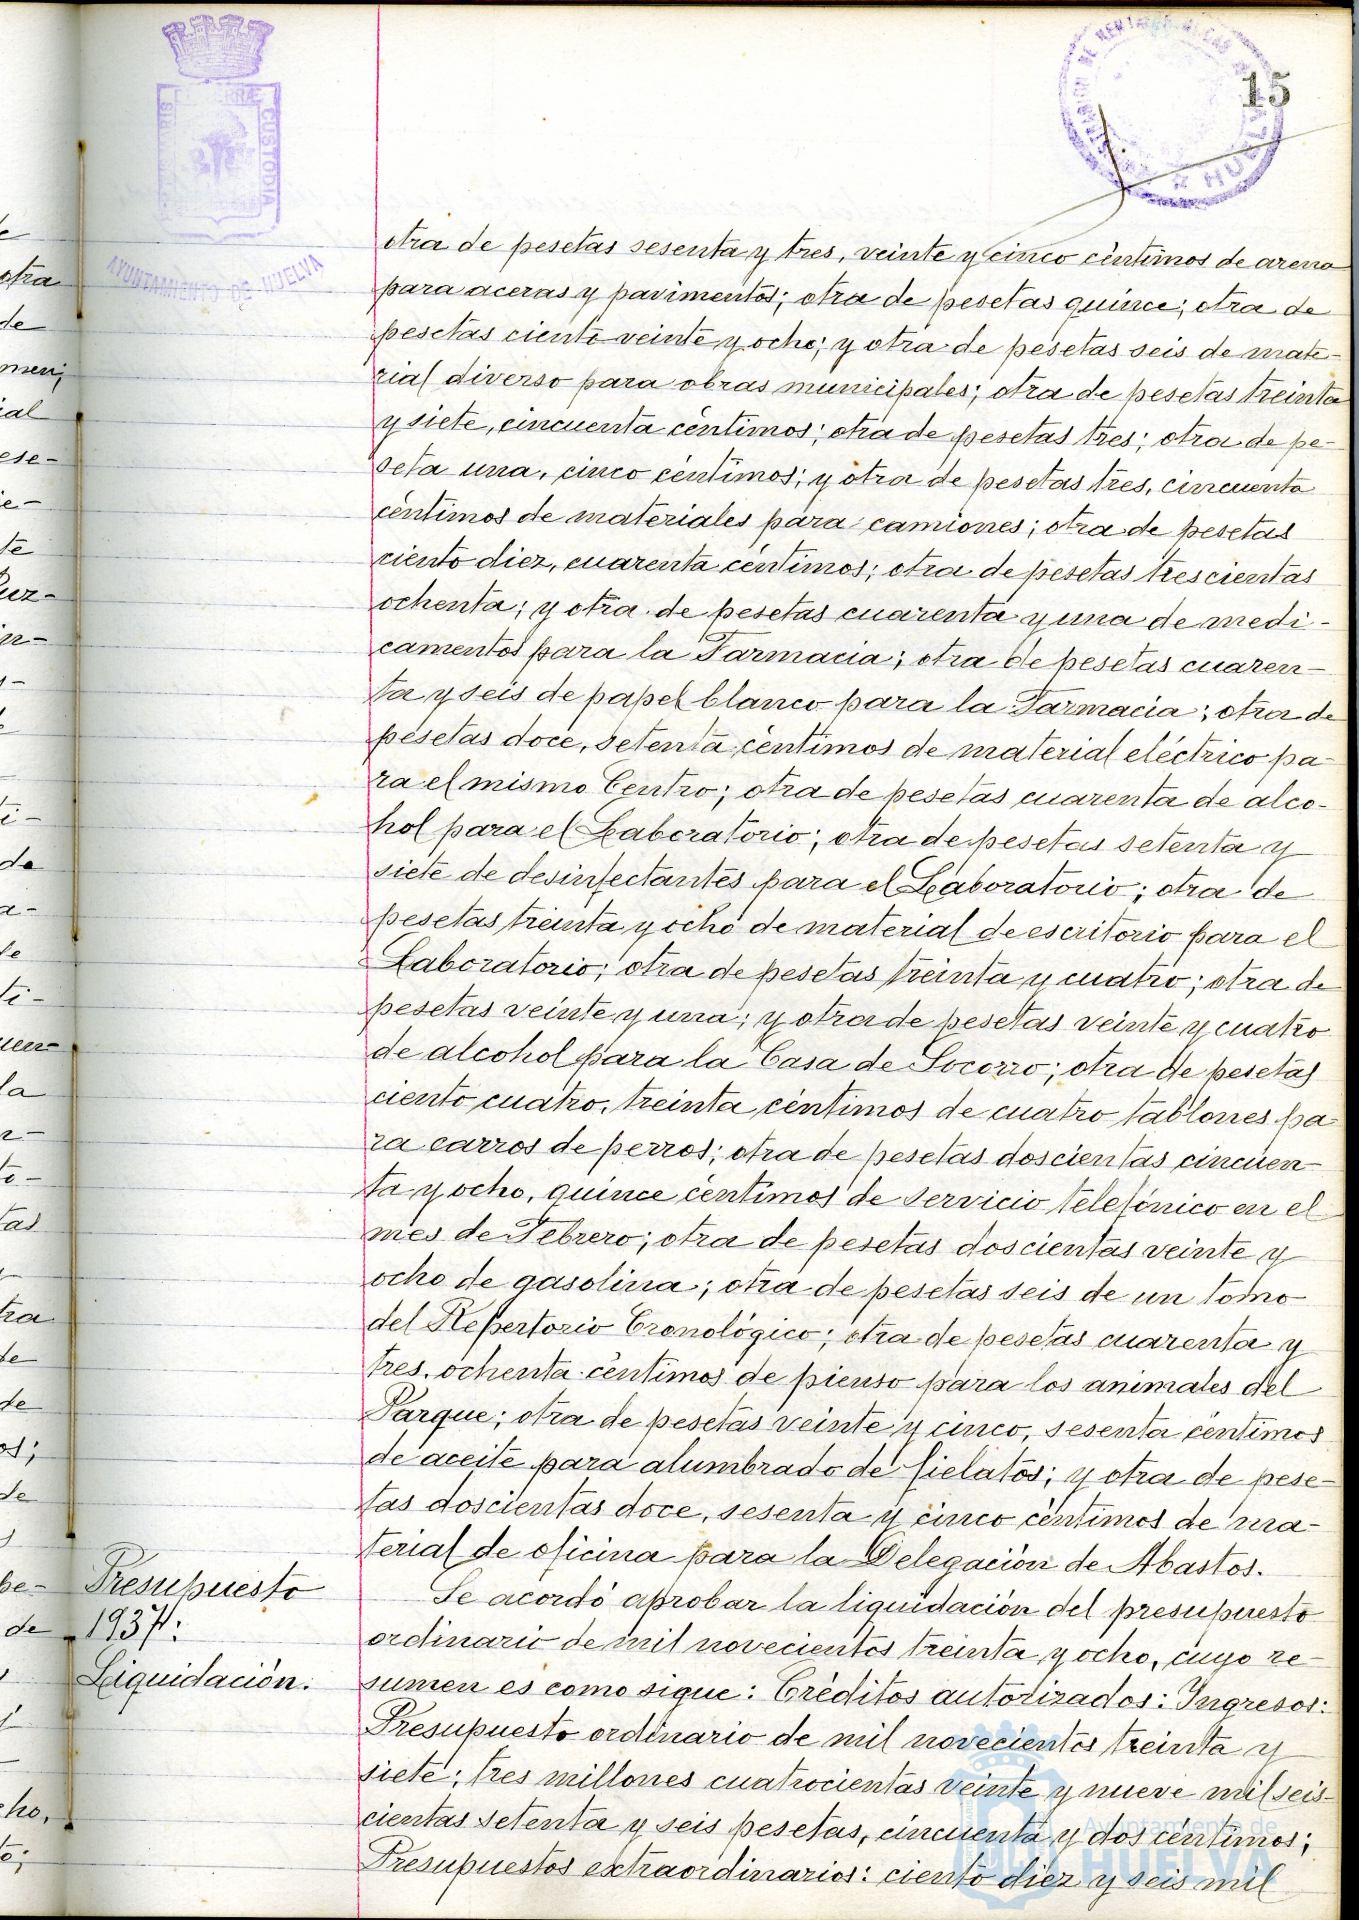 15
PORTUS MARIS ET TERRÆ CUSTODIA
AYUNTAMIENTO DE HUELVA
ADMINISTRACION DE RENTAS PUBLICAS HUELVA
otra de pesetas sesenta y tres, veinte y cinco céntimos de arena
para aceras y pavimentos; otra de pesetas quince; otra de
pesetas ciento veinte y ocho; y otra de pesetas seis de mate-
rial diverso para obras municipales; otra de pesetas treinta
y siete, cincuenta céntimos; otra de pesetas tres; otra de pe-
seta una, cinco céntimos; y otra de pesetas tres, cincuenta
céntimos de materiales para camiones; otra de pesetas
ciento diez, cuarenta céntimos; otra de pesetas trescientas
ochenta; y otra de pesetas cuarenta y una de medi-
camentos para la Farmacia; otra de pesetas cuaren-
ta y seis de papel blanco para la Farmacia; otra de
pesetas doce, setenta céntimos de material eléctrico pa-
ra el mismo Centro; otra de pesetas cuarenta de alco-
hol para el Laboratorio; otra de pesetas setenta y
siete de desinfectantes para el Laboratorio; otra de
pesetas treinta y ocho de material de escritorio para el
Laboratorio; otra de pesetas treinta y cuatro; otra de
pesetas veinte y una; y otra de pesetas veinte y cuatro
de alcohol para la Casa de Socorro; otra de pesetas
ciento cuatro, treinta céntimos de cuatro tablones pa-
ra carros de perros; otra de pesetas doscientas cincuen-
ta y ocho, quince céntimos de servicio telefónico en el
mes de Febrero; otra de pesetas doscientas veinte y
ocho de gasolina; otra de pesetas seis de un tomo
del Repertorio Cronológico; otra de pesetas cuarenta y
tres, ochenta céntimos de pienso para los animales del
Parque; otra de pesetas veinte y cinco, sesenta céntimos
de aceite para alumbrado de fielatos; y otra de pese-
tas doscientas doce, sesenta y cinco céntimos de ma-
terial de oficina para la Delegación de Abastos.
Presupuesto
1937:
Liquidación.
Se acordó aprobar la liquidación del presupuesto
ordinario de mil novecientos treinta y ocho, cuyo re-
sumen es como sigue: Créditos autorizados: Ingresos:
Presupuesto ordinario de mil novecientos treinta y
siete: tres millones cuatrocientas veinte y nueve mil seis-
cientas setenta y seis pesetas, cincuenta y dos céntimos;
Presupuestos extraordinarios: ciento diez y seis mil
Ayuntamiento de
HUELVA